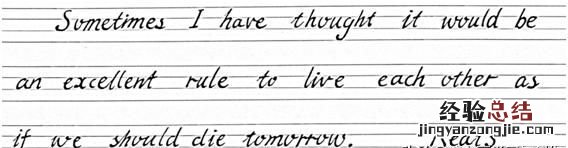 Sometimes I have thought it would be
an excellent rule to live each other as
if we should die tomorrow.
经验总结
jingyanzongjie.com